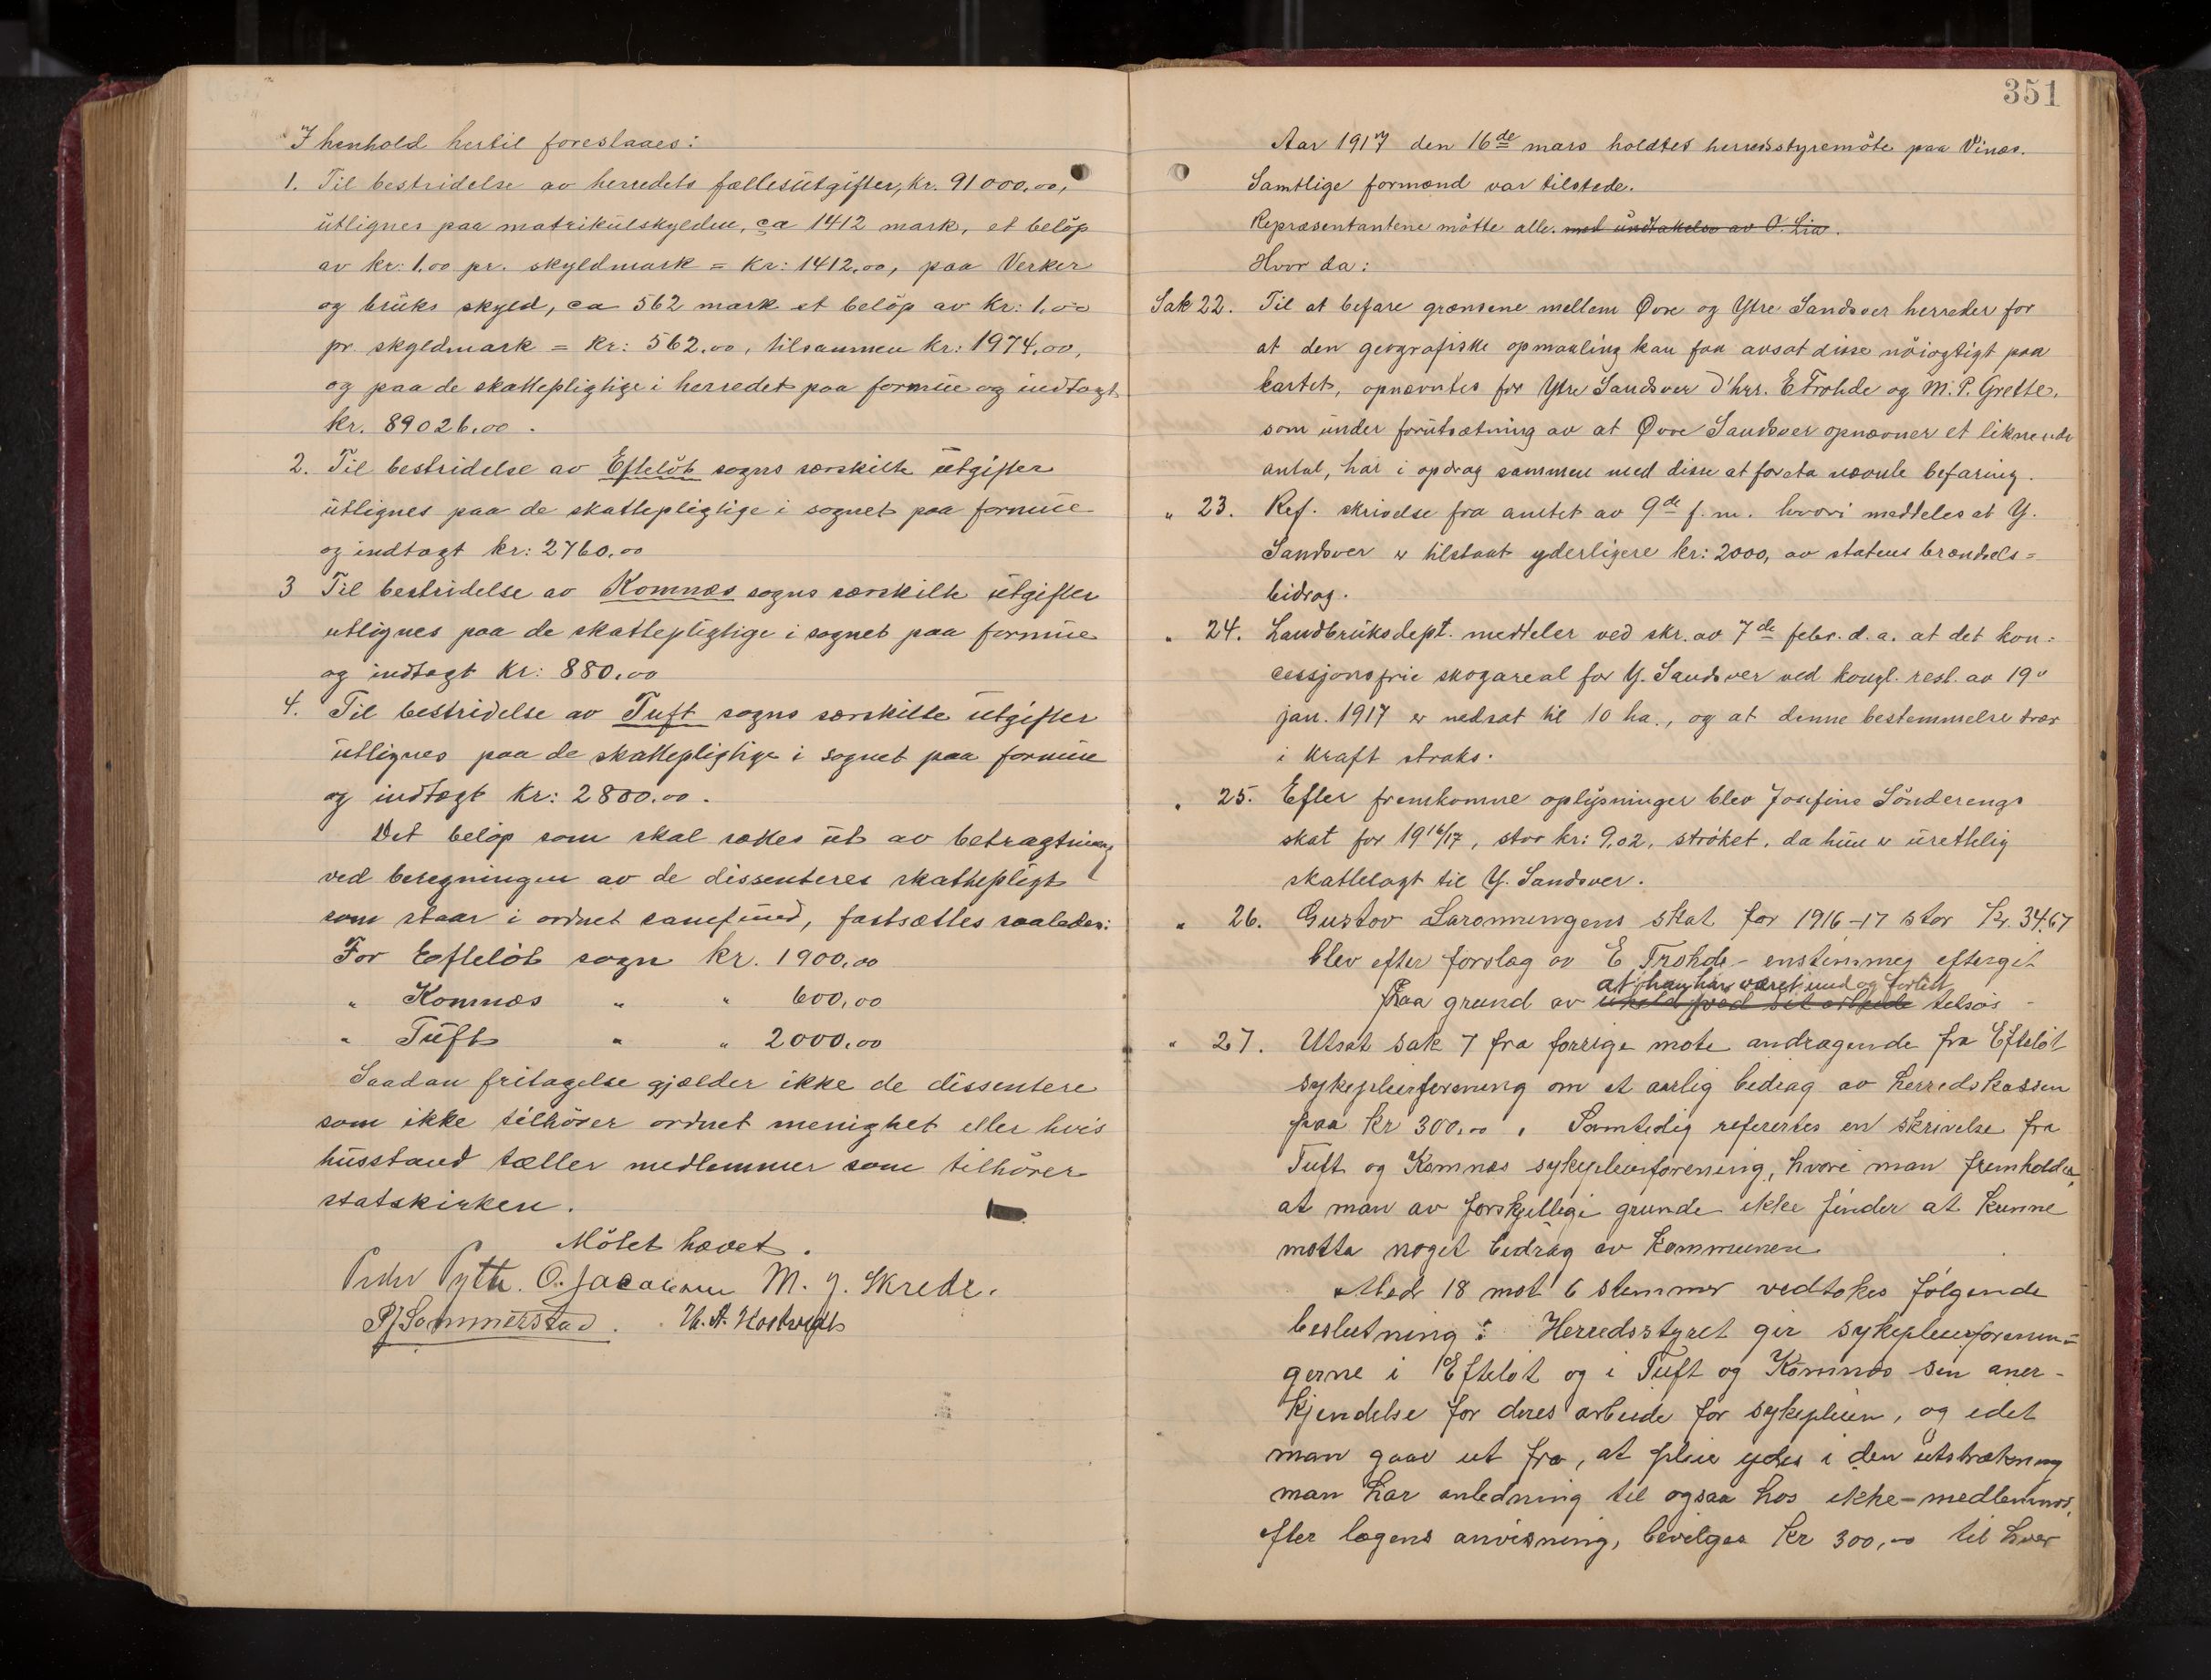 I henhold hertil foreslaaes:
1. Til bestridelse av herredets fællesutgifter, kr. 91000,00,
utlignes paa matrikulskylden, ca 1412 mark, et beløp
av kr: 1.00 pr. skyldmark = kr: 1412,00, paa Verker
og bruks skyld, ca 562 mark et beløp av kr: 1.00
pr. skyldmark = kr: 562,00, tilsammen kr: 1974,00,
og paa de skattepligtige i herredet paa formue og indtægt
kr. 89026,00.
2. Til bestridelse av Efteløt sogns særskilte utgifter
utlignes paa de skattepligtige i sognet paa formue
og indtægt kr: 2760,00
3 Til bestridelse av Komnæs sogns særskilte utgifter
utlignes paa de skattepligtige i sognet paa formue
og indtægt kr: 880,00
4. Til bestridelse av Tuft sogns særskilte utgifter
utlignes paa de skattepligtige i sognet paa formue
og indtægt kr: 2800,00.
Det beløp som skal sættes ut av betragtning
ved beregningen av de dissenteres skattepligt
som staar i ordnet samfund, fastsættes saaledes:
For Efteløt sogn kr. 1900,00
" Komnæs " " 600,00
" Tuft " " 2000,00
Saadan fritagelse gjælder ikke de dissentere
som ikke tilhører ordnet menighet eller hvis
husstand tæller medlemmer som tilhører
statskirken.
Møtet hævet.
Peder Pytte. O. Jacobsen M. J. Skrede.
P J Sommerstad. H. A.
351
Aar 1917 den 16de mars holdtes herredsstyremøte paa Vinæs.
Samtlige formænd var tilstede.
Repræsentantene møtte alle. med undtakelse av O. Lia.
Hvor da:
Sak 22. Til at befare grænsene mellem Øvre og Ytre Sandsver herreder for
at den geografiske opmaaling kan faa avsat disse nøiagtigt paa
kartet, opnævntes for Ytre Sandsver D'hrr. E Frohde og M. P. Grette,
som under forutsætning av at Øvre Sandsver opnævner et liknende
antal, har i opdrag sammen med disse at foreta nævnte befaring.
" 23. Ref. skrivelse fra amtet av 9de f. m. hvori meddeles at Y.
Sandsver er tilstaat yderligere kr: 2000, av statens brændsels=
bidrag.
" 24. Landbruksdept. meddeler ved skr. av 7de febr. d. a. at det kon=
cessjonsfrie skogareal for Y. Sandsver ved kongl. resl. av 19"
jan. 1917 er nedsat til 10 ha., og at denne bestemmelse træer
i kraft straks.
" 25. Efter fremkomne oplysninger blev Josefine Sønderengs
skat for 1916/17, stor kr: 9,02, strøket, da hun er urettelig
skattelagt til Y. Sandsver.
" 26. Gustav Laronningens skat for 1916-17 stor kr. 34.67
blev efter forslag av E Frohde - enstemmig eftergit
at han har været
paa grund av tilsøs -
" 27. Utsat sak 7 fra forrige møte andragende fra Efteløt
sykepleieforening om et aarlig bidrag av herredskassen
paa kr 300,00. Samtidig refereretes en skrivelse fra
Tuft og Komnæs sykepleieforening, hvori man fremholder
at man av forskjellige grunde ikke finder at kunne
motta noget bidrag av kommunen.
Med 18 mot 6 stemmer vedtokes følgende
beslutning: Herredsstyret gir sykepleieforenin=
gerne i Efteløt og i Tuft og Komnæs sin aner-
kjendelse for deres arbeide for sykepleien, og idet
man gaar ut fra, at pleie ydes i den utstrækning
man har anledning til ogsaa hos ikke-medlemmer
efter lægens anvisning, bevilges kr 300,00 til hver